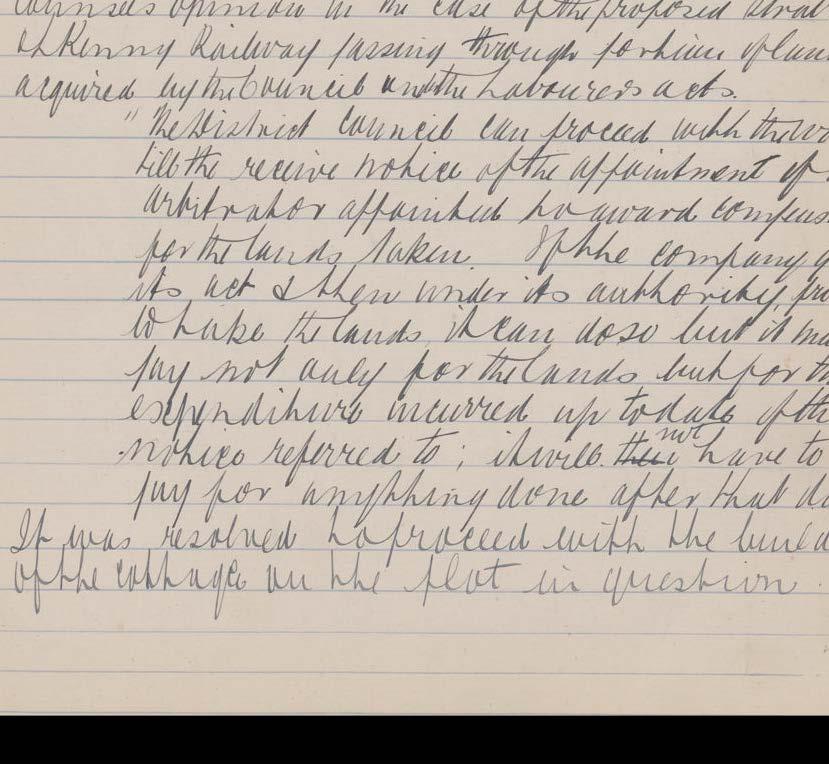 Counsels opinion in the case of the proposed
Kenny Railway passing through portions of
acquired by the Council under the Labourers acts.
" The District Council can proceed with the
till the receive notice of the appointment of
arbitrator appointed to award compens
for the lands taken. If the company
its act & then under its authority, pro
to take the lands, it can do so but it mu
pay not only for the lands but for th
expenditure incurred up to date of the
notice referred to ; it will not have to
pay for anything done after that da
It was resolved to proceed with the build
of the cottage on the plot in question.